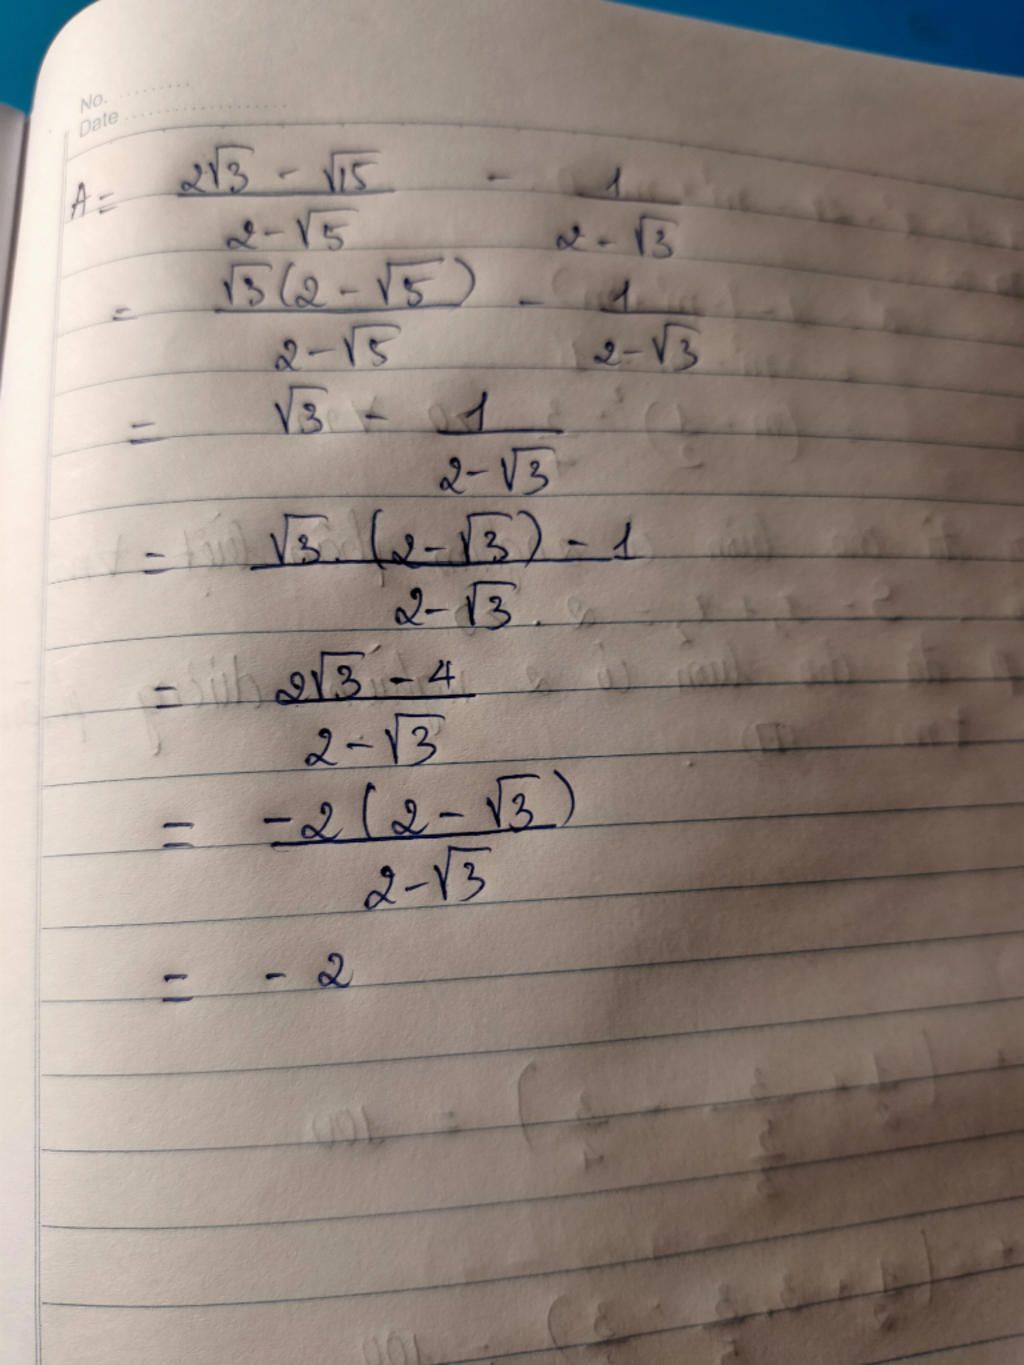 No. ..........
Date ..................
A = (2√3 - √15)/(2 - √5) - 1/(2 - √3)
= √3(2 - √5)/(2 - √5) - 1/(2 - √3)
= √3 - 1/(2 - √3)
= (√3.(2 - √3) - 1)/(2 - √3).
= (2√3 - 4)/(2 - √3)
= -2(2 - √3)/(2 - √3)
= - 2